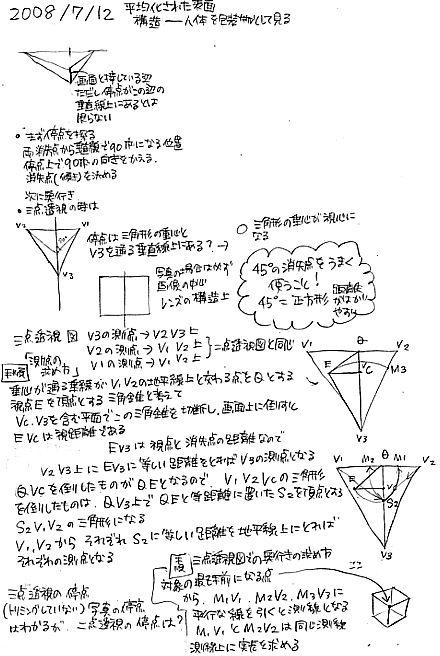 2008/7/12 平均化された表面
構造 ― 人体を包装物として見る
画面と接している辺
ただし停点がこの辺の
垂直線上にあるとは
限らない
・まず停点を探る
両消失点から直線で90°になる位置
停点上で90°の向きをかえる
消失点(傾き)を決める
次に奥行き
・三点透視の時は
V2 V1
90°
V3
停点は三角形の重心と
V3を通る垂直線上にある? →
○ 三角形の重心が視心に
なる
写真の場合は必ず
画像の中心
レンズの構造上
45°の消失点をうまく
使うこと!
45°=正方形
距離が
はかり
やすい
三点透視図 V3の測点→V2V3上
V2の測点→V1V2上
V1の測点→V1V2上
二点透視図と同じ
「測点の
求め方」
手順
垂心が通る垂線がV1,V2の地平線上と交わる点をQとする
視点Eを頂点とする三角錐と考えて
Vc,V3を含む平面でこの三角錐を切断し、画面上に倒すと
EVcは視距離である
V1 Q V2
E VC M3
V3
EV3は視点と消失点の距離なので
V2V3上にEV3に等しい距離をとればV3の測点となる
QVCを倒したものがQEとなるので、V1,V2Vcの三角形
を倒したものは、QV3上でQEと等距離に置いたS2を頂点とする
S2V1V2の三角形になる
V1,V2からそれぞれS2に等しい距離を地平線上にとれば
それぞれの測点となる
V1 M2 Q M1 V2
E Vc
S2
V3
手順 三点透視図での奥行きの求め方
対象の最も手前になる点
から、M1V1, M2V2, M3V3に
平行な線を引くと測線となる
M1V1とM2V2は同じ測線
測線上に実寸を求める
ココ
三点透視の停点
(トリミングしていない)写真の停点
はわかるが、二点透視の停点は?